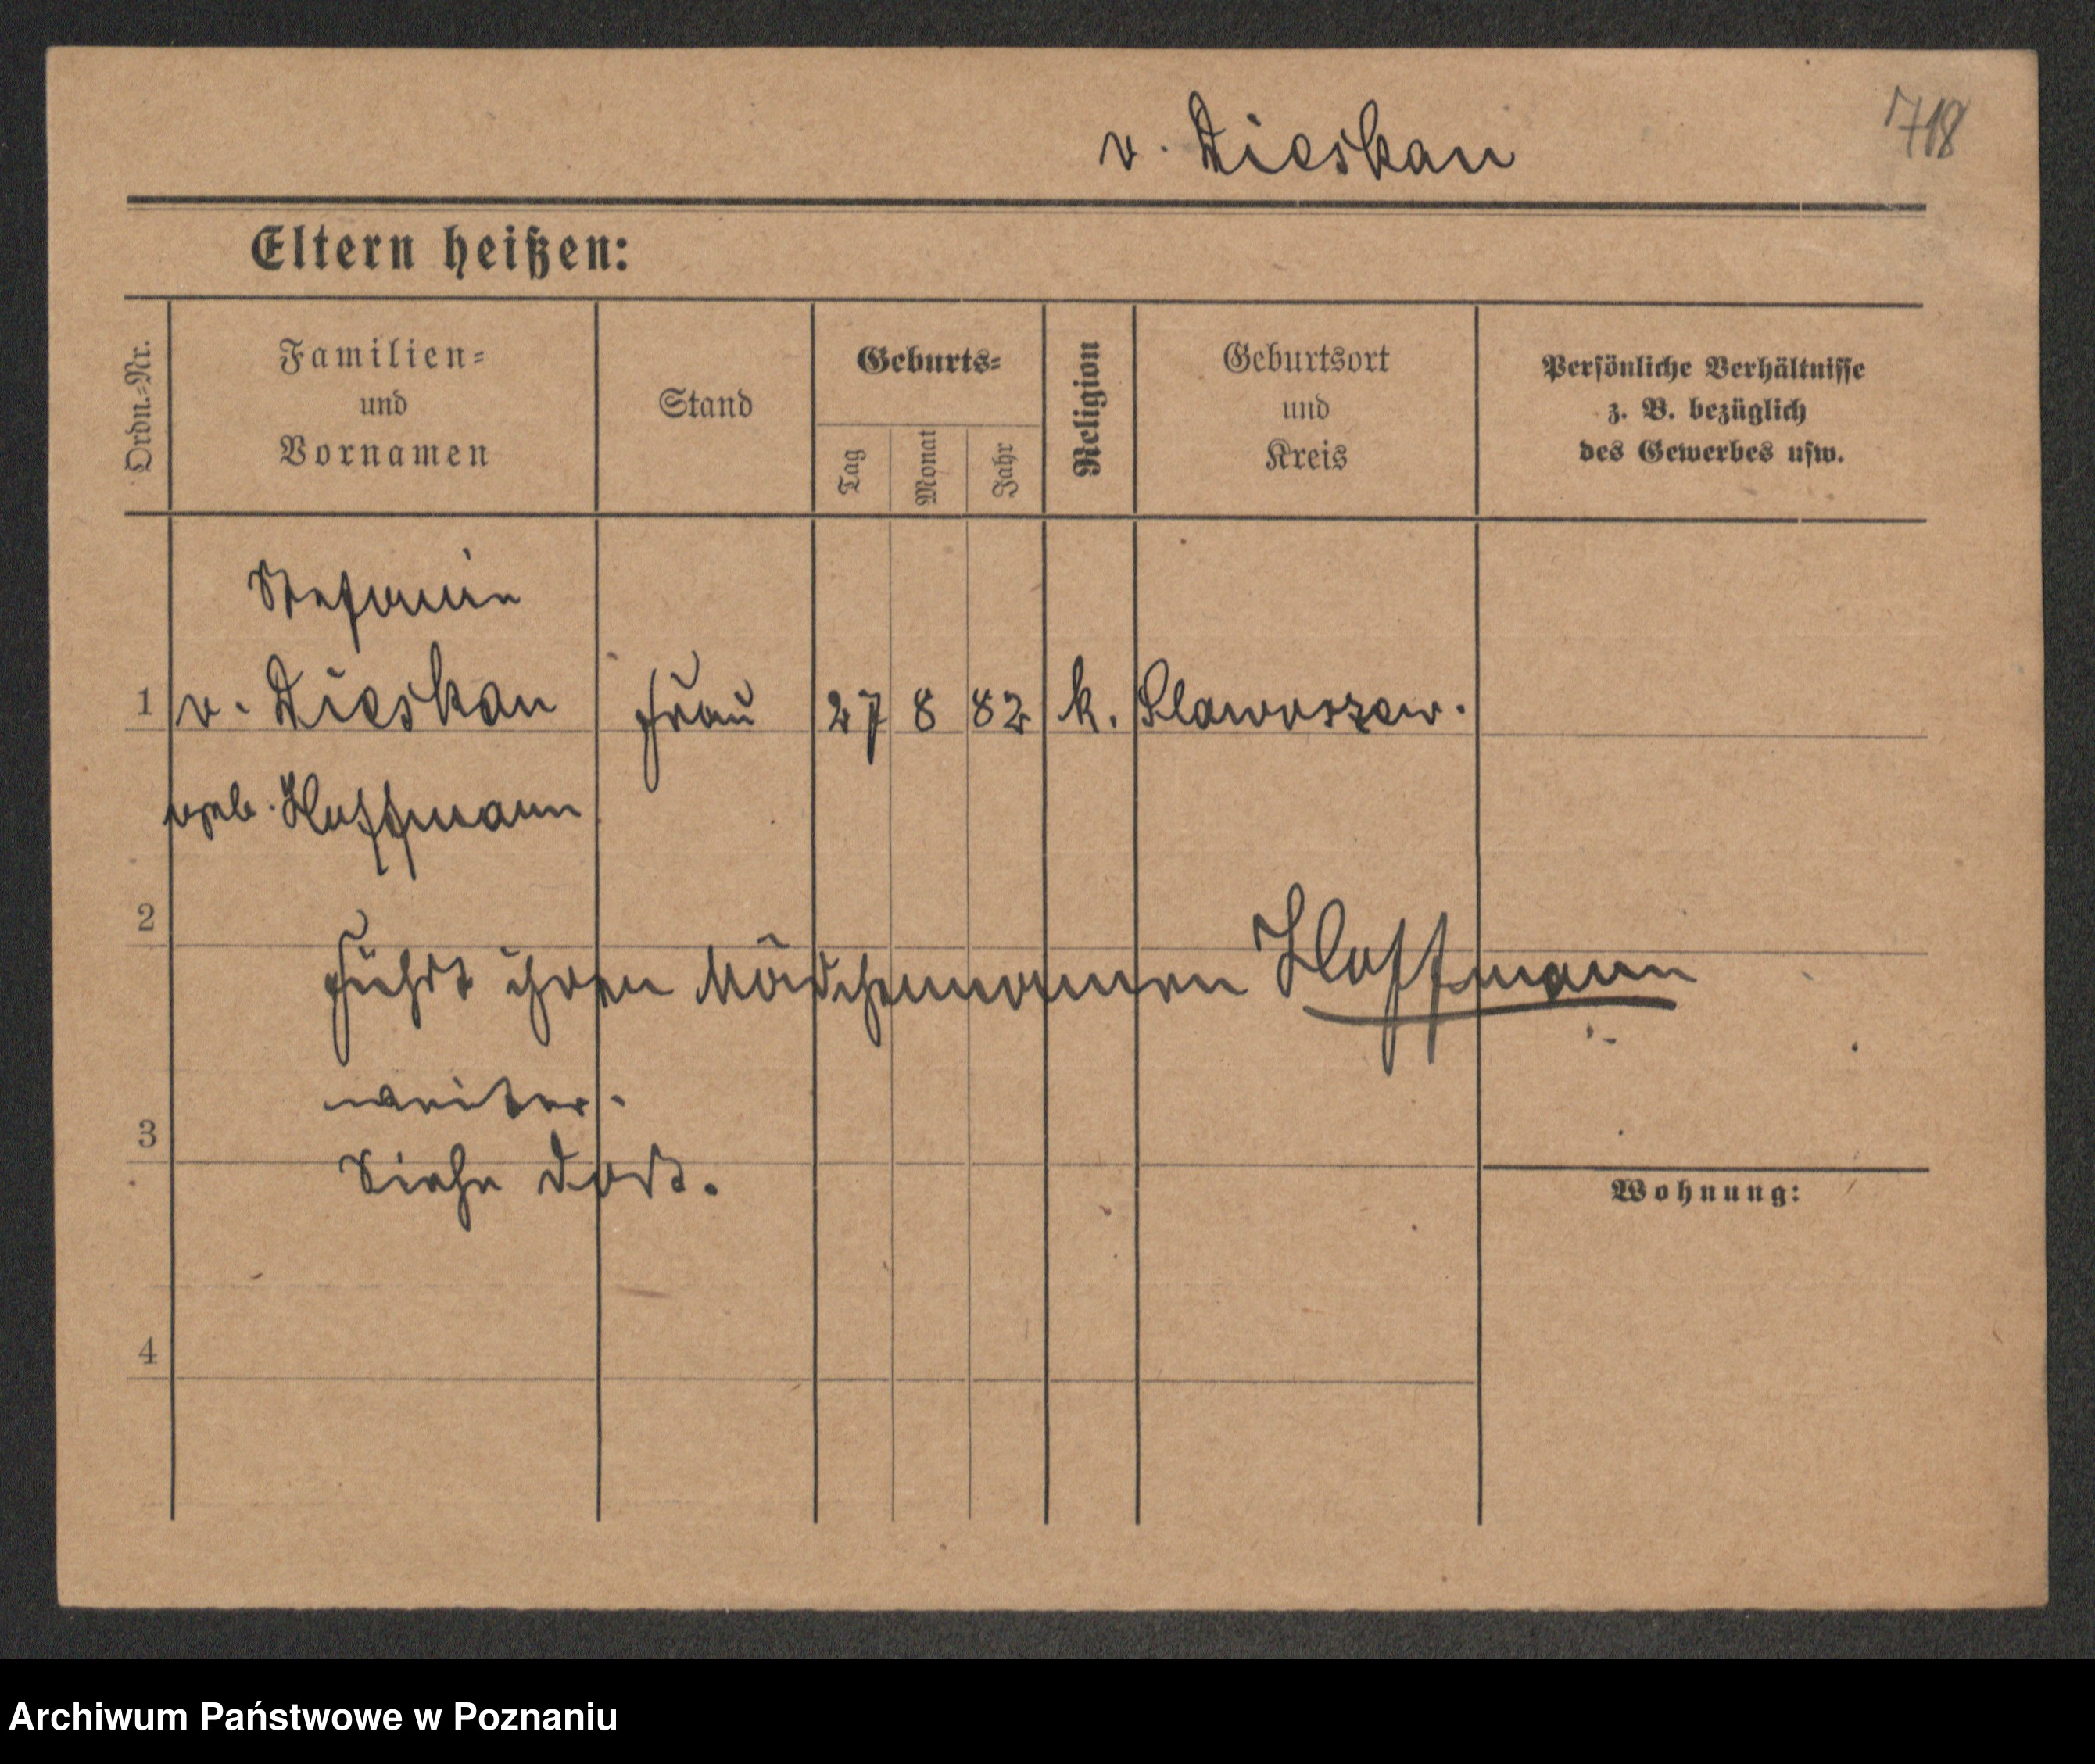 718
v. Dieskau
Eltern heißen:
Ordn.-Nr.
Familien-
und
Vornamen
Stand
Geburts-
Tag
Monat
Jahr
Religion
Geburtsort
und
Kreis
Persönliche Verhältnisse
z. B. bezüglich
des Gewerbes usw.
Stefanie
1 v. Dieskau Frau 27 8 82 k. Slawoszew.
Hoffmann
2
führt ihren Mädchennamen Hoffmann
weiter.
3
Siehe dort.
Wohnung:
4
Archiwum Państwowe w Poznaniu